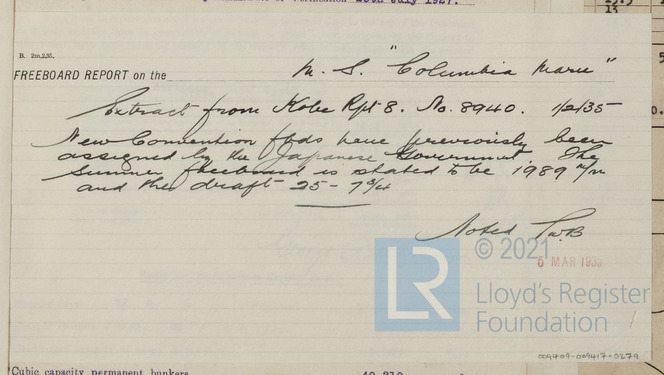 28th July 1927.
B. 2m.2,35.
FREEBOARD REPORT on the M. S. "Columbia Maru"
Extract from Kobe Rpt 8. No. 8940. 1/2/35
New Convention fbds have previously been
assigned by the Japanese Government. The
Summer freeboard is stated to be 1989 m/m
and the draft 25 - 7 3/4
Noted
© 2021
5 MAR 1935
LR
Lloyd's Register
Foundation
009409-009417-0279
Cubic capacity permanent bunkers